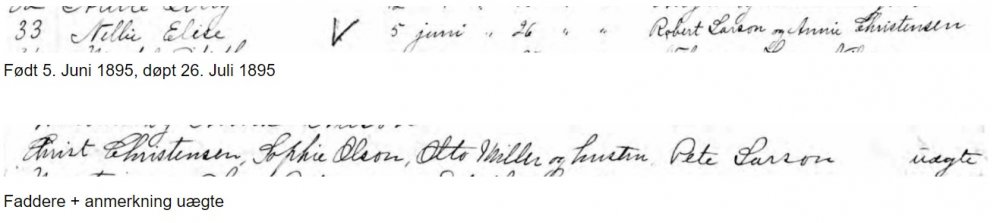 33 Nellie Elise V 5 juni " 26 " " Robert Larson og Annie Christensen
Født 5. Juni 1895, døpt 26. Juli 1895
Christ Christensen, Sophie Olson, Otto Miller og hustru Pete Larson uægte
Faddere + anmerkning uægte